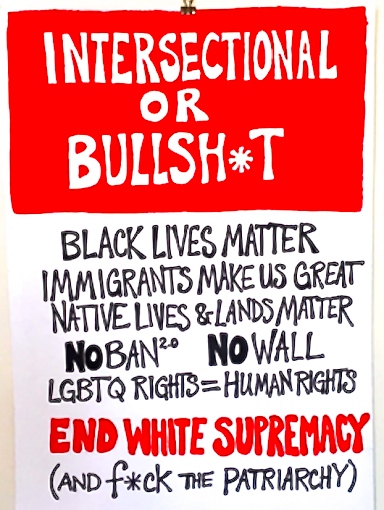 INTERSECTIONAL
OR
BULLSH*T
BLACK LIVES MATTER
IMMIGRANTS MAKE US GREAT
NATIVE LIVES & LANDS MATTER
NO BAN 2.0 NO WALL
LGBTQ RIGHTS = HUMAN RIGHTS
END WHITE SUPREMACY
(AND f*ck THE PATRIARCHY)